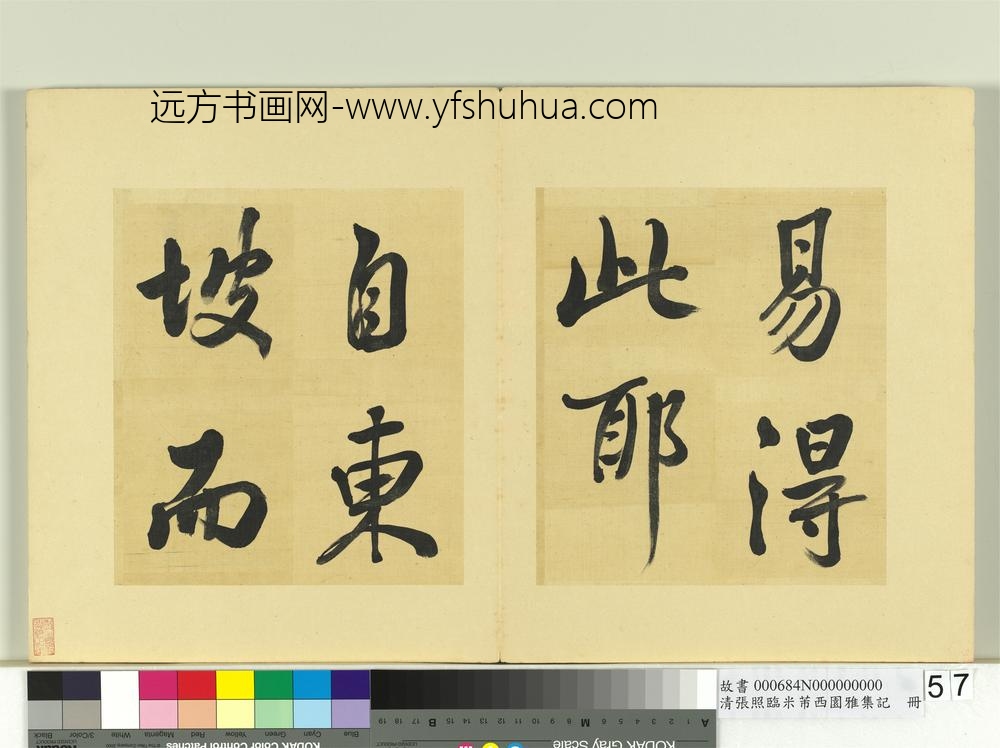 远方书画网-www.yfshuhua.com
易得
此耶
自東
坡而
故書 000684N000000000
清張照臨米芾西園雅集記 冊
57
Blue
Cyan
Green
Yellow
Red
Magenta
White
3/Color
Black
KODAK Color Control Patches
KODAK Gray Scale
A 1 2 3 4 5 6 M 8 9 10 11 12 13 14 15 B 17 18 19